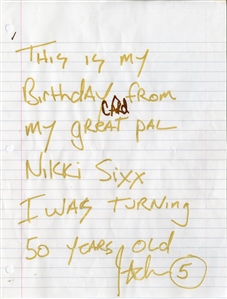 This is my
Birthday Card from
my great pal
Nikki Sixx
I was turning
50 years old
5